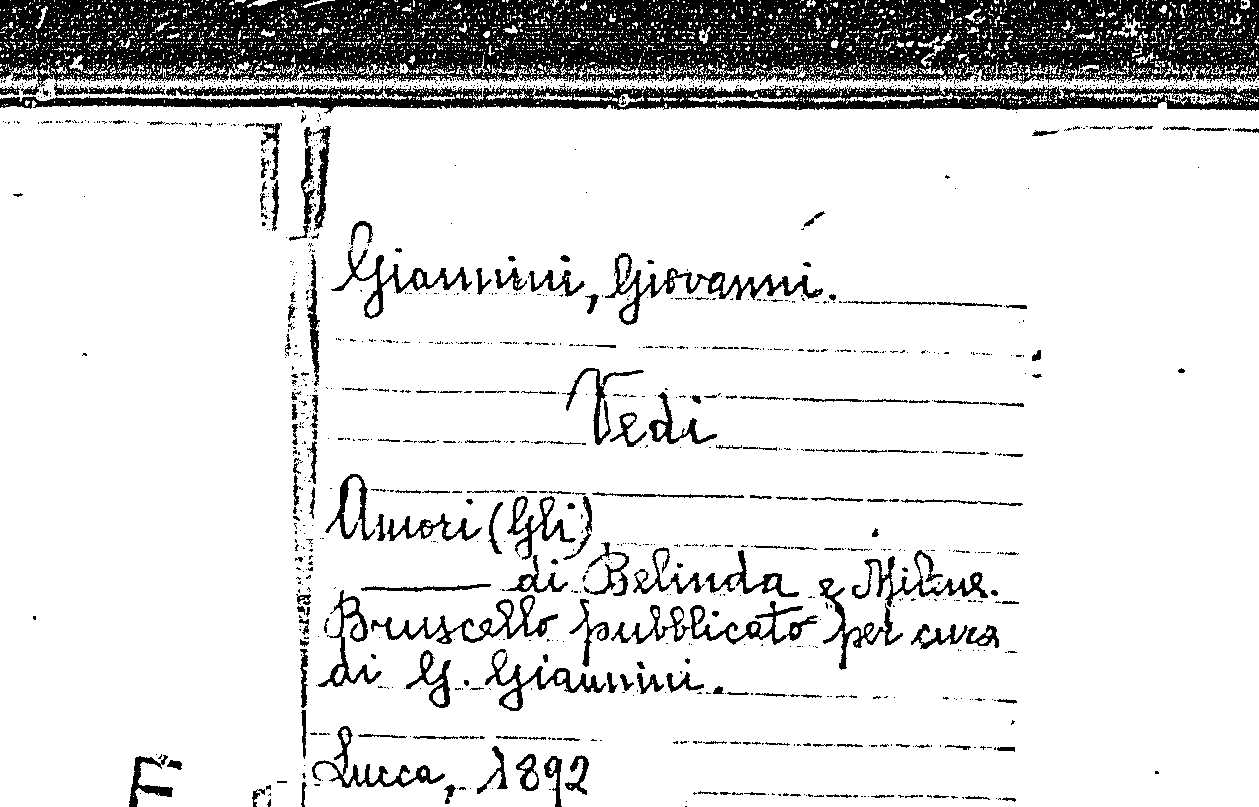 Giannini, Giovanni.
Vedi
Amori (Gli)
——— di Belinda e Milene.
Bruscello pubblicato per cura
di G. Giannini.
Lucca, 1892
F